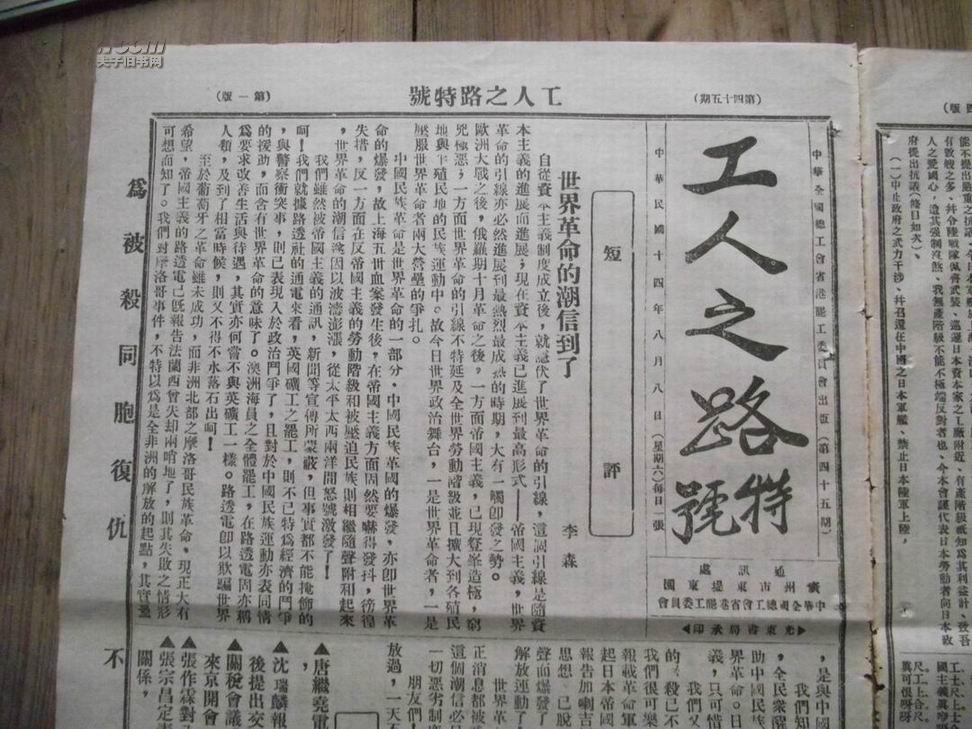 夫子旧书网
工人之路特號
（第四十五期）
（第一版）
工人之路特號
中華全國總工會省港罷工委員會出版（第四十五期）
中華民國十四年八月八日（星期六）每日一張
通訊處
廣州市東堤東園
中華全國總工會省港罷工委員會
◀光東書局承印▶
短評
世界革命的潮信到了
李森
自從資本主義制度成立後，就隱伏了世界革命的引線，這詞引線是隨資
本主義的進展而進展；現在資本主義已進展到最高形式——帝國主義，世界
革命的引線亦必然進展到最熱烈最成熟的時期，大有一觸卽發之勢。
歐洲大戰之後，俄羅斯十月革命之後，一方面帝國主義，已現登峯造極，窮
兇極惡；一方面世界革命的引線不特延及全世界勞動階級並且擴大到各殖民
地與半殖民地的民族運動中。故今日世界政治舞台，一是世界革命者，一是
壓服世界革命者兩大營壘的爭扎。
中國民族革命是世界革命的一部分，中國民族革國的爆發，亦卽世界革
命的爆發，故上海五卅血案發生後，在帝國主義方面固然要嚇得發抖，徬徨
失措，反一方面在反帝國主義的勞動階級和被壓迫民族則相繼隨聲附和起來
，世界革命的潮信遂因以波濤澎漲，從太平太西兩洋間怒號激發了！
我們雖然被帝國主義的通訊，新聞等宣傳所蒙蔽，但事實都不能掩飾的
呵！我們就據路透社的通電來看，英國礦工之罷工，則不已特為經濟的鬥爭
，與警察衝突事，則已表現入於政治鬥爭了，且對於中國民族運動亦表同情
的援助，而含有世界革命的意味了。澳洲海員之全體罷工，在路透電固亦稱
為要求改善生活與待遇，其實亦何嘗不與英礦工一樣。路透電卽以欺騙世界
人類，及到了相當時候，則又不得不水落石出呵！
至於葡萄牙之革命雖未成功，而非洲北部之摩洛哥民族革命，現正大有
希望，帝國主義的路透電已旣報告法蘭西曾失却兩哨地了，則其失敗之情形
可想而知了。我們對摩洛哥事件，不特以爲是全非洲的解放的起點，其實量
爲被殺同胞復仇
不
▲唐繼堯電
▲沈瑞麟報
後提出交
▲關稅會議
來京開會
▲張作霖對
▲張宗昌定
關係，
，是與中國
我們知
，全民衆醒
助中國民族
界革命。日
義，只可惜
我們又
的殺已不
我們很可樂
報載革命軍
起日本帝國
報告加喇吉
思想已脫
聲而爆發了
解放運動了
世界革
正消息都被
這個潮信必
一切惡劣制度
朋友們！
放過，一天不
（一）中止政府之武力干涉、幷召還在中國之日本軍艦、禁止日本陸軍上陸，
府提出抗議（錄日如次）、